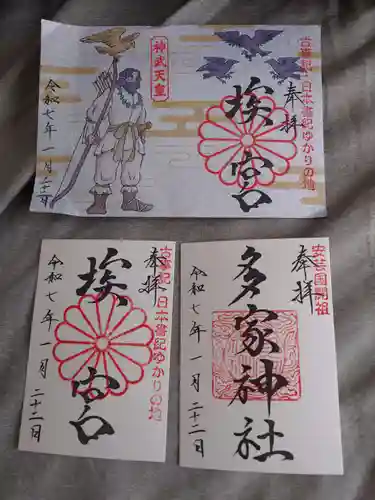 古事記・日本書紀ゆかりの地
奉拝
埃宮
神武天皇
令和七年一月二十二日
古事記・日本書紀ゆかりの地
奉拝
埃宮
令和七年一月二十二日
安芸国開祖
奉拝
多家神社
令和七年一月二十二日